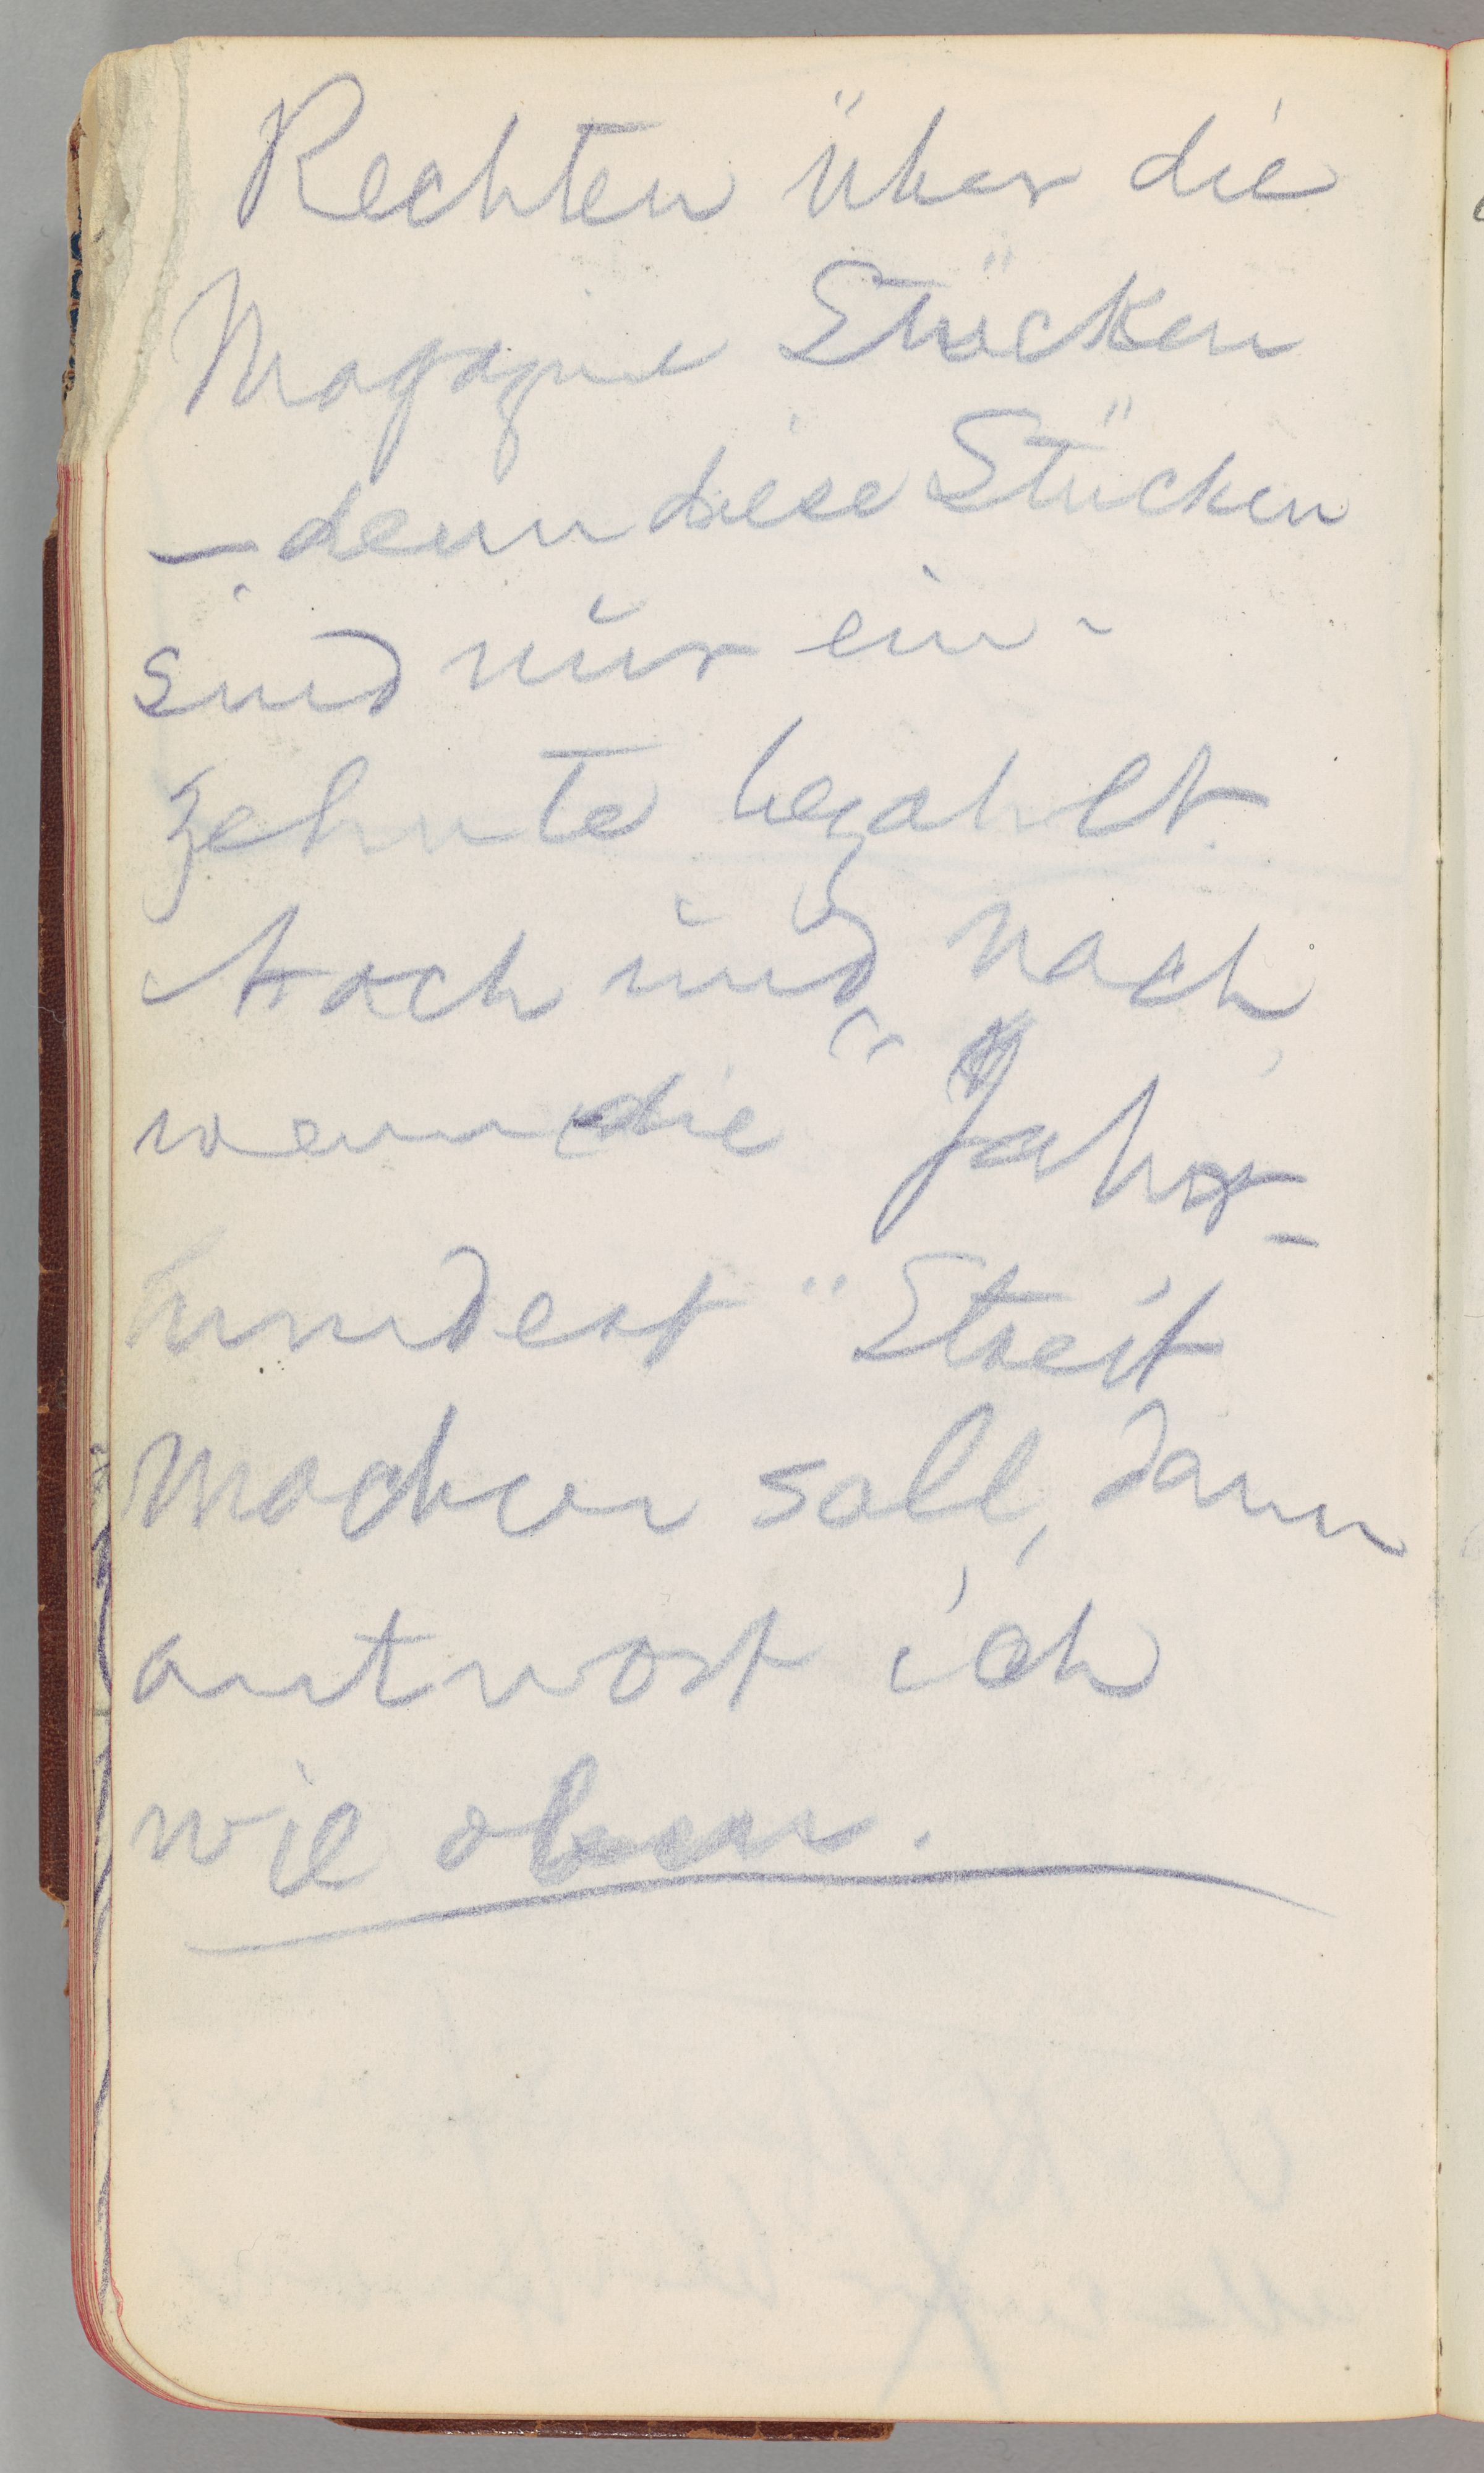 Rechten über die
Magazine Stücken
— denn diese Stücken
sind nur ein-
zehnte bezahlt.
Nach und nach,
wenn die "Jahr-
hundert" Streit
machen soll, dann
antwort ich
wie oben.